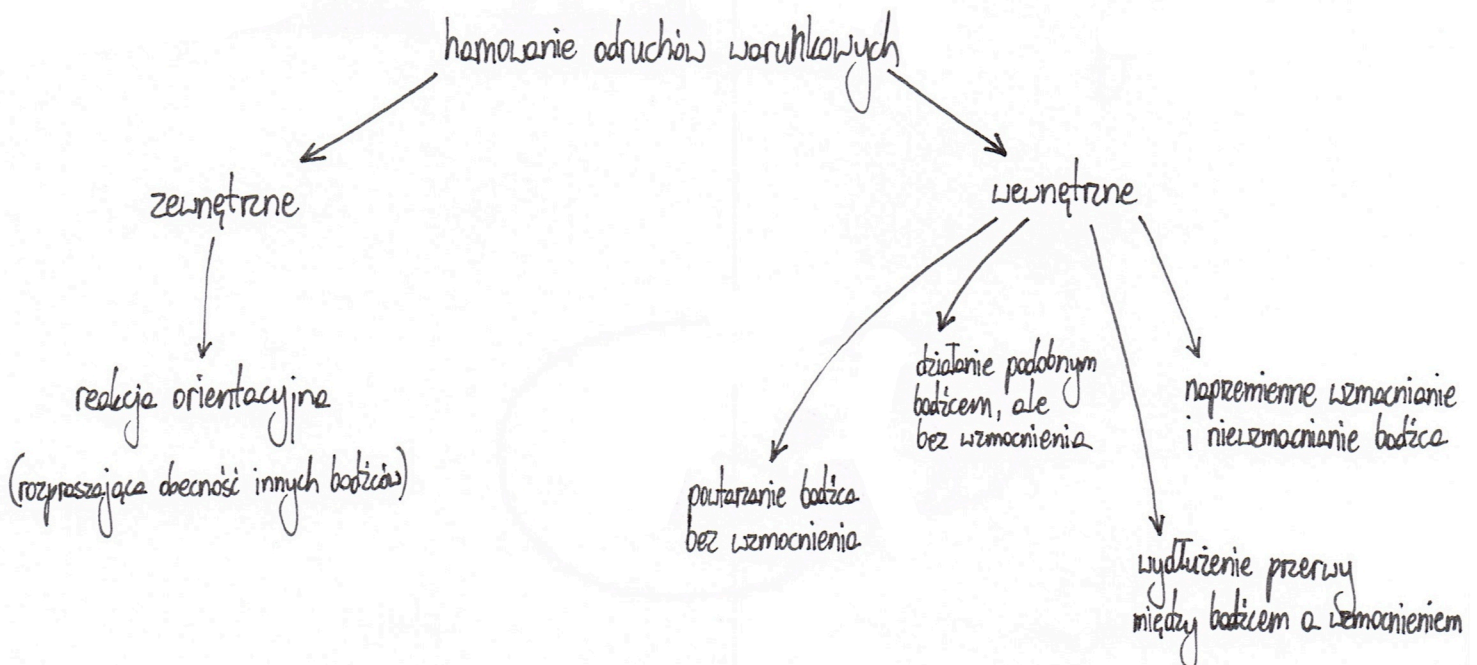 hamowanie odruchów warunkowych
zewnętrzne
wewnętrzne
reakcja orientacyjna
(rozpraszająca obecność innych bodźców)
powtarzanie bodźca
bez wzmocnienia
działanie podobnym
bodźcem, ale
bez wzmocnienia
wydłużenie przerwy
między bodźcem a wzmocnieniem
naprzemienne wzmacnianie
i niewzmacnianie bodźca